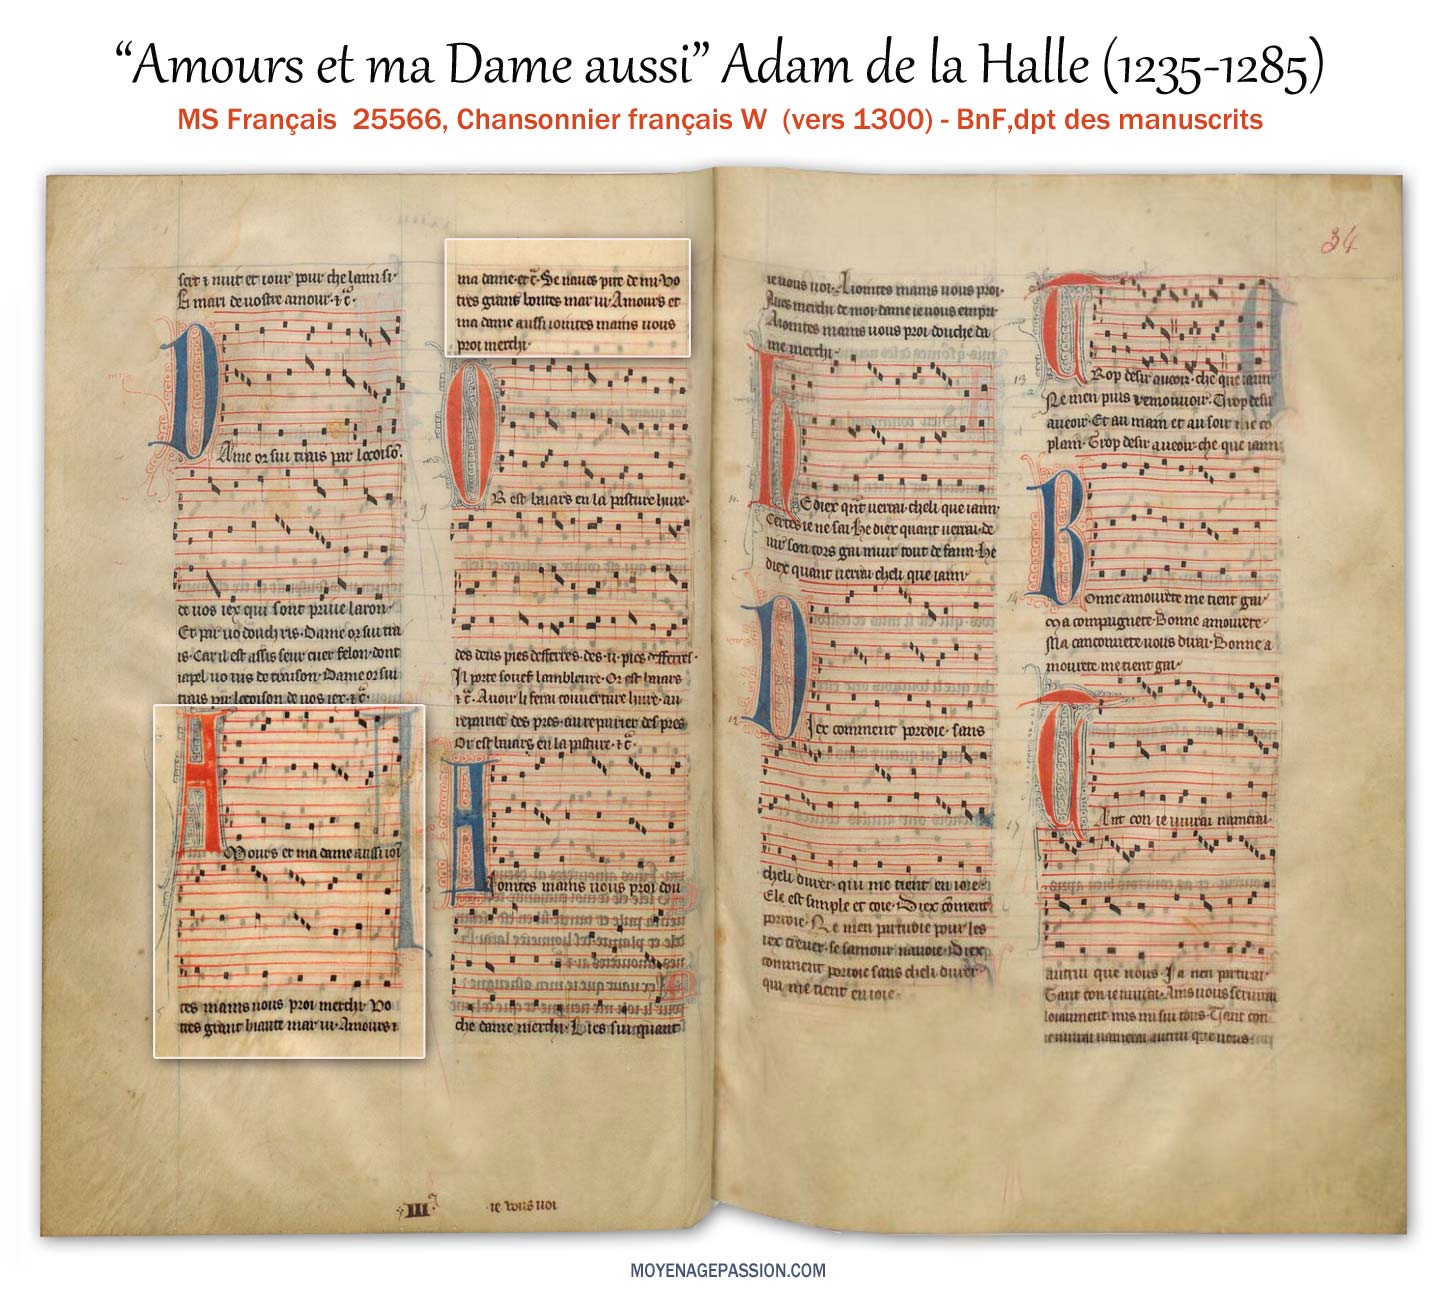 “Amours et ma Dame aussi” Adam de la Halle (1235-1285)
MS Français 25566, Chansonnier français W (vers 1300) - BnF,dpt des manuscrits
34
E mari de vostre amour · ⁊c·
Ame or sui trais par locoiso·
de vos iex qui sont prive laron·
Et par vo douch ris· Dame or sui tra
is· Car il est assis seur cuer felon· dont
Dame or sui
trais par locoison de vos iex· ⁊c·
Mours et ma dame aussi ioi
tes mains vous proi merchi· Vo
tres grant biaute mar vi· Amours ⁊
ma dame· et c̄· Se naves pite de mi· Vo
tres grans bontes mar vi· Amours et
ma dame aussi iointes mains vous
proi merchi·
R est baiars en la pasture hure·
des deus pies defferres· des·ii· pies defferres·
Il porte souef lambleure· Or est baiars
⁊c̄· Avoir li ferai couverture hure· au
repairier des pres· au repairier des pres
Or est baiars en la pasture· ⁊c̄·
Iointes mains vous proi dou
che dame merchi· Lies sui quant
III
ie vous voi
ie vous voi· A iointes mains vous proi·
Aies merchi de moi dame ie vous empri·
A iointes mains vous proi douche da
me merchi·
E diex qnt verrai cheli que iaim·
Certes ie ne sai· He diex quant verrai· de
vir son cors gai muir tout de faim· He
diex quant verrai cheli que iaim·
Iex comment porroie· sans
cheli durer· qui me tient en ioie·
Ele est simple et coie· Diex coment
porroie· Ne men partiroie pour les
iex crever· se samour navoie· Diex
comment porroie sans cheli durer·
qui me tient en ioie·
13
Rop desir a veoir· che que iaim
Ne men puis remouvoir· Trop desir
a veoir· Et au main et au soir me co
plain· Trop desir a veoir· che que iaim
14
Onne amourete me tient gai·
Ma compaignete· Bonne amourete·
Ma canconnete vous dirai· Bonne a
mourete me tient gai·
Ant con ie vivrai namerai·
autrui que vous· Ja nen partirai·
Tant con ie vivrai· Ains vous servirai
loiaument mis mi sui tous· Tant con
ie vivrai namerai autrui que vous·
MOYENAGEPASSION.COM